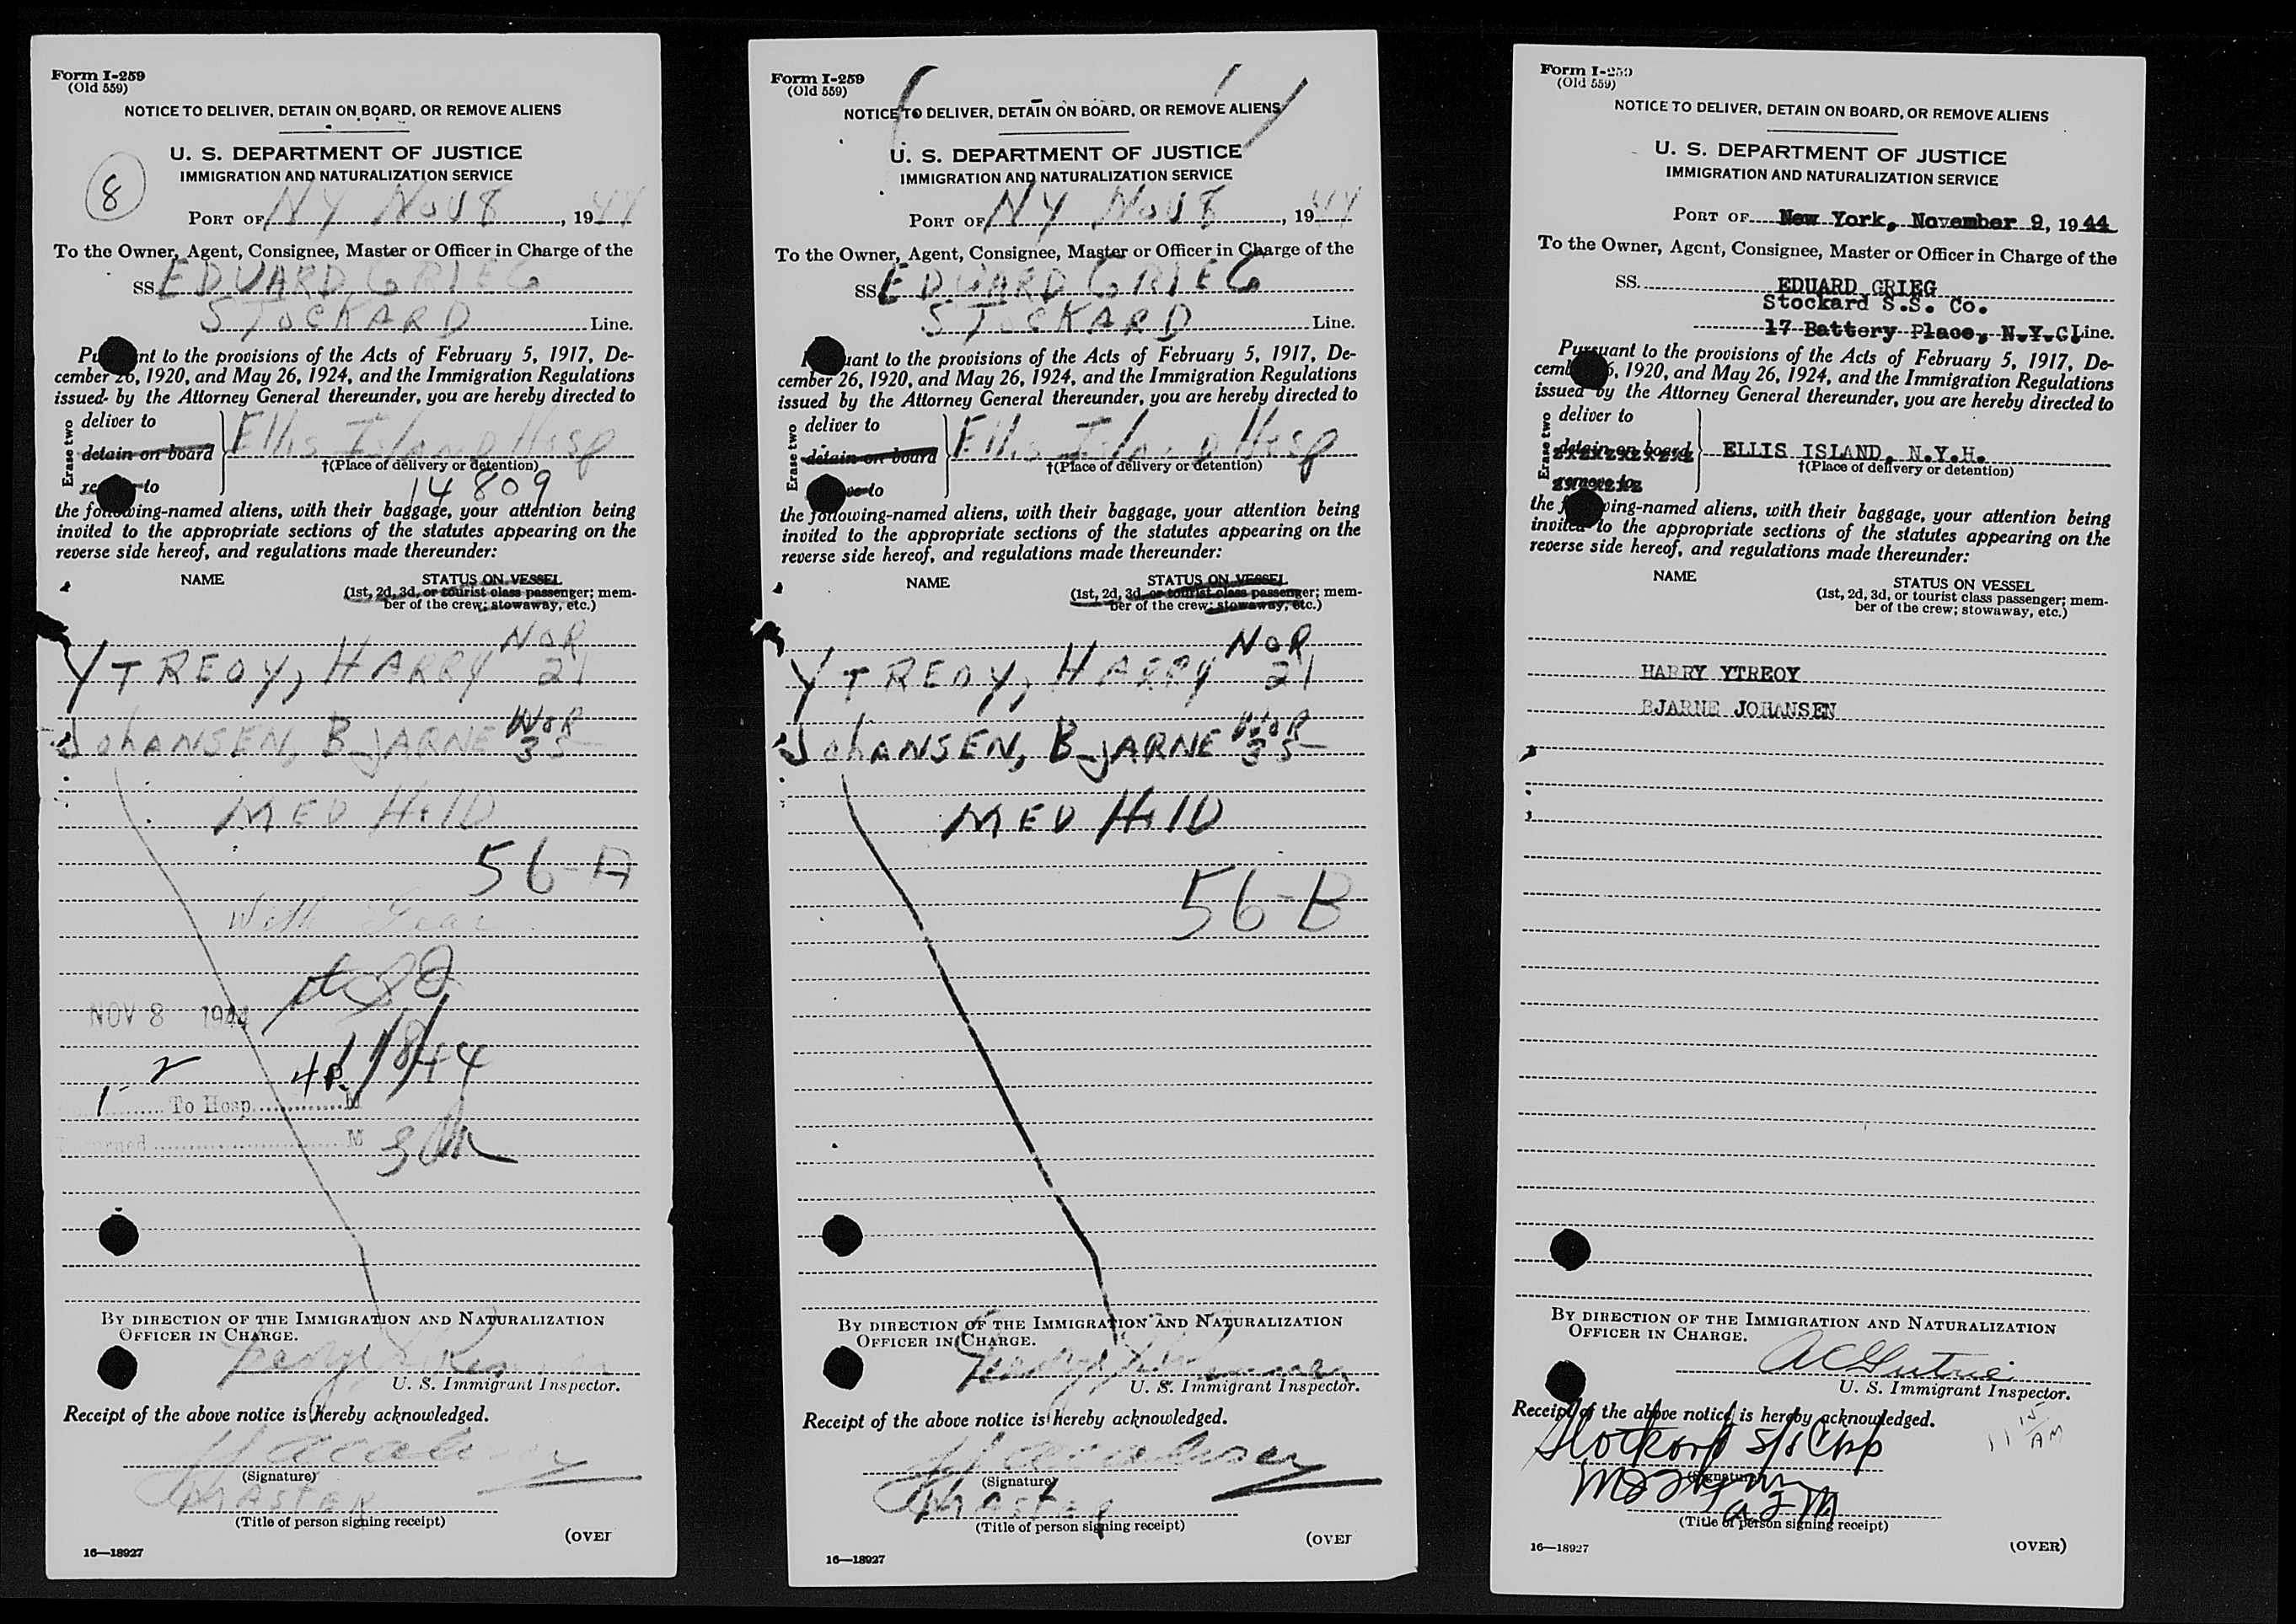 Form I-259
(Old 559)
NOTICE TO DELIVER, DETAIN ON BOARD, OR REMOVE ALIENS
U. S. DEPARTMENT OF JUSTICE
IMMIGRATION AND NATURALIZATION SERVICE
8
PORT OF NY Nov 8, 1944
To the Owner, Agent, Consignee, Master or Officer in Charge of the
SS EDUARD GRIEG
STOCKARD Line.
Pursuant to the provisions of the Acts of February 5, 1917, De-
cember 26, 1920, and May 26, 1924, and the Immigration Regulations
issued by the Attorney General thereunder, you are hereby directed to
Erase two
deliver to
detain on board
Ellis Island Hosp
†(Place of delivery or detention)
remove to
14809
the following-named aliens, with their baggage, your attention being
invited to the appropriate sections of the statutes appearing on the
reverse side hereof, and regulations made thereunder:
NAME STATUS ON VESSEL
(1st, 2d, 3d, or tourist class passenger; mem-
ber of the crew; stowaway, etc.)
YTREOY, HARRY NOR 21
JohANSEN, BJARNE NOR 35
MED HelD
56-A
With Gear
NOV 8 1944
2
4 P. 11/8/44
1- To Hosp. M
M
BY DIRECTION OF THE IMMIGRATION AND NATURALIZATION
OFFICER IN CHARGE.
U. S. Immigrant Inspector.
Receipt of the above notice is hereby acknowledged.
(Signature)
MASTER
(Title of person signing receipt)
(OVER
16—18927
Form I-259
(Old 559)
NOTICE TO DELIVER, DETAIN ON BOARD, OR REMOVE ALIENS
U. S. DEPARTMENT OF JUSTICE
IMMIGRATION AND NATURALIZATION SERVICE
PORT OF NY Nov 8, 1944
To the Owner, Agent, Consignee, Master or Officer in Charge of the
SS EDUARD GRIEG
STOCKARD Line.
Pursuant to the provisions of the Acts of February 5, 1917, De-
cember 26, 1920, and May 26, 1924, and the Immigration Regulations
issued by the Attorney General thereunder, you are hereby directed to
Erase two
deliver to
detain on board
Ellis Island Hosp
†(Place of delivery or detention)
remove to
the following-named aliens, with their baggage, your attention being
invited to the appropriate sections of the statutes appearing on the
reverse side hereof, and regulations made thereunder:
NAME STATUS ON VESSEL
(1st, 2d, 3d, or tourist class passenger; mem-
ber of the crew; stowaway, etc.)
YTREOY, HARRY NOR 21
JohANSEN, BJARNE NOR 35
MED HelD
56-B
BY DIRECTION OF THE IMMIGRATION AND NATURALIZATION
OFFICER IN CHARGE.
U. S. Immigrant Inspector.
Receipt of the above notice is hereby acknowledged.
(Signature)
MASTER
(Title of person signing receipt)
(OVER
16—18927
Form I-259
(Old 559)
NOTICE TO DELIVER, DETAIN ON BOARD, OR REMOVE ALIENS
U. S. DEPARTMENT OF JUSTICE
IMMIGRATION AND NATURALIZATION SERVICE
PORT OF New York, November 9, 1944
To the Owner, Agent, Consignee, Master or Officer in Charge of the
SS. EDUARD GRIEG
Stockard S.S. Co.
17 Battery Place, N.Y.C. Line.
Pursuant to the provisions of the Acts of February 5, 1917, De-
cember 26, 1920, and May 26, 1924, and the Immigration Regulations
issued by the Attorney General thereunder, you are hereby directed to
Erase two
deliver to
detain on board
ELLIS ISLAND, N.Y.H.
†(Place of delivery or detention)
remove to
the following-named aliens, with their baggage, your attention being
invited to the appropriate sections of the statutes appearing on the
reverse side hereof, and regulations made thereunder:
NAME STATUS ON VESSEL
(1st, 2d, 3d, or tourist class passenger; mem-
ber of the crew; stowaway, etc.)
HARRY YTREOY
BJARNE JOHANSEN
BY DIRECTION OF THE IMMIGRATION AND NATURALIZATION
OFFICER IN CHARGE.
U. S. Immigrant Inspector.
Receipt of the above notice is hereby acknowledged.
11 15 AM
(Signature)
(Title of person signing receipt)
(OVER)
16—18927